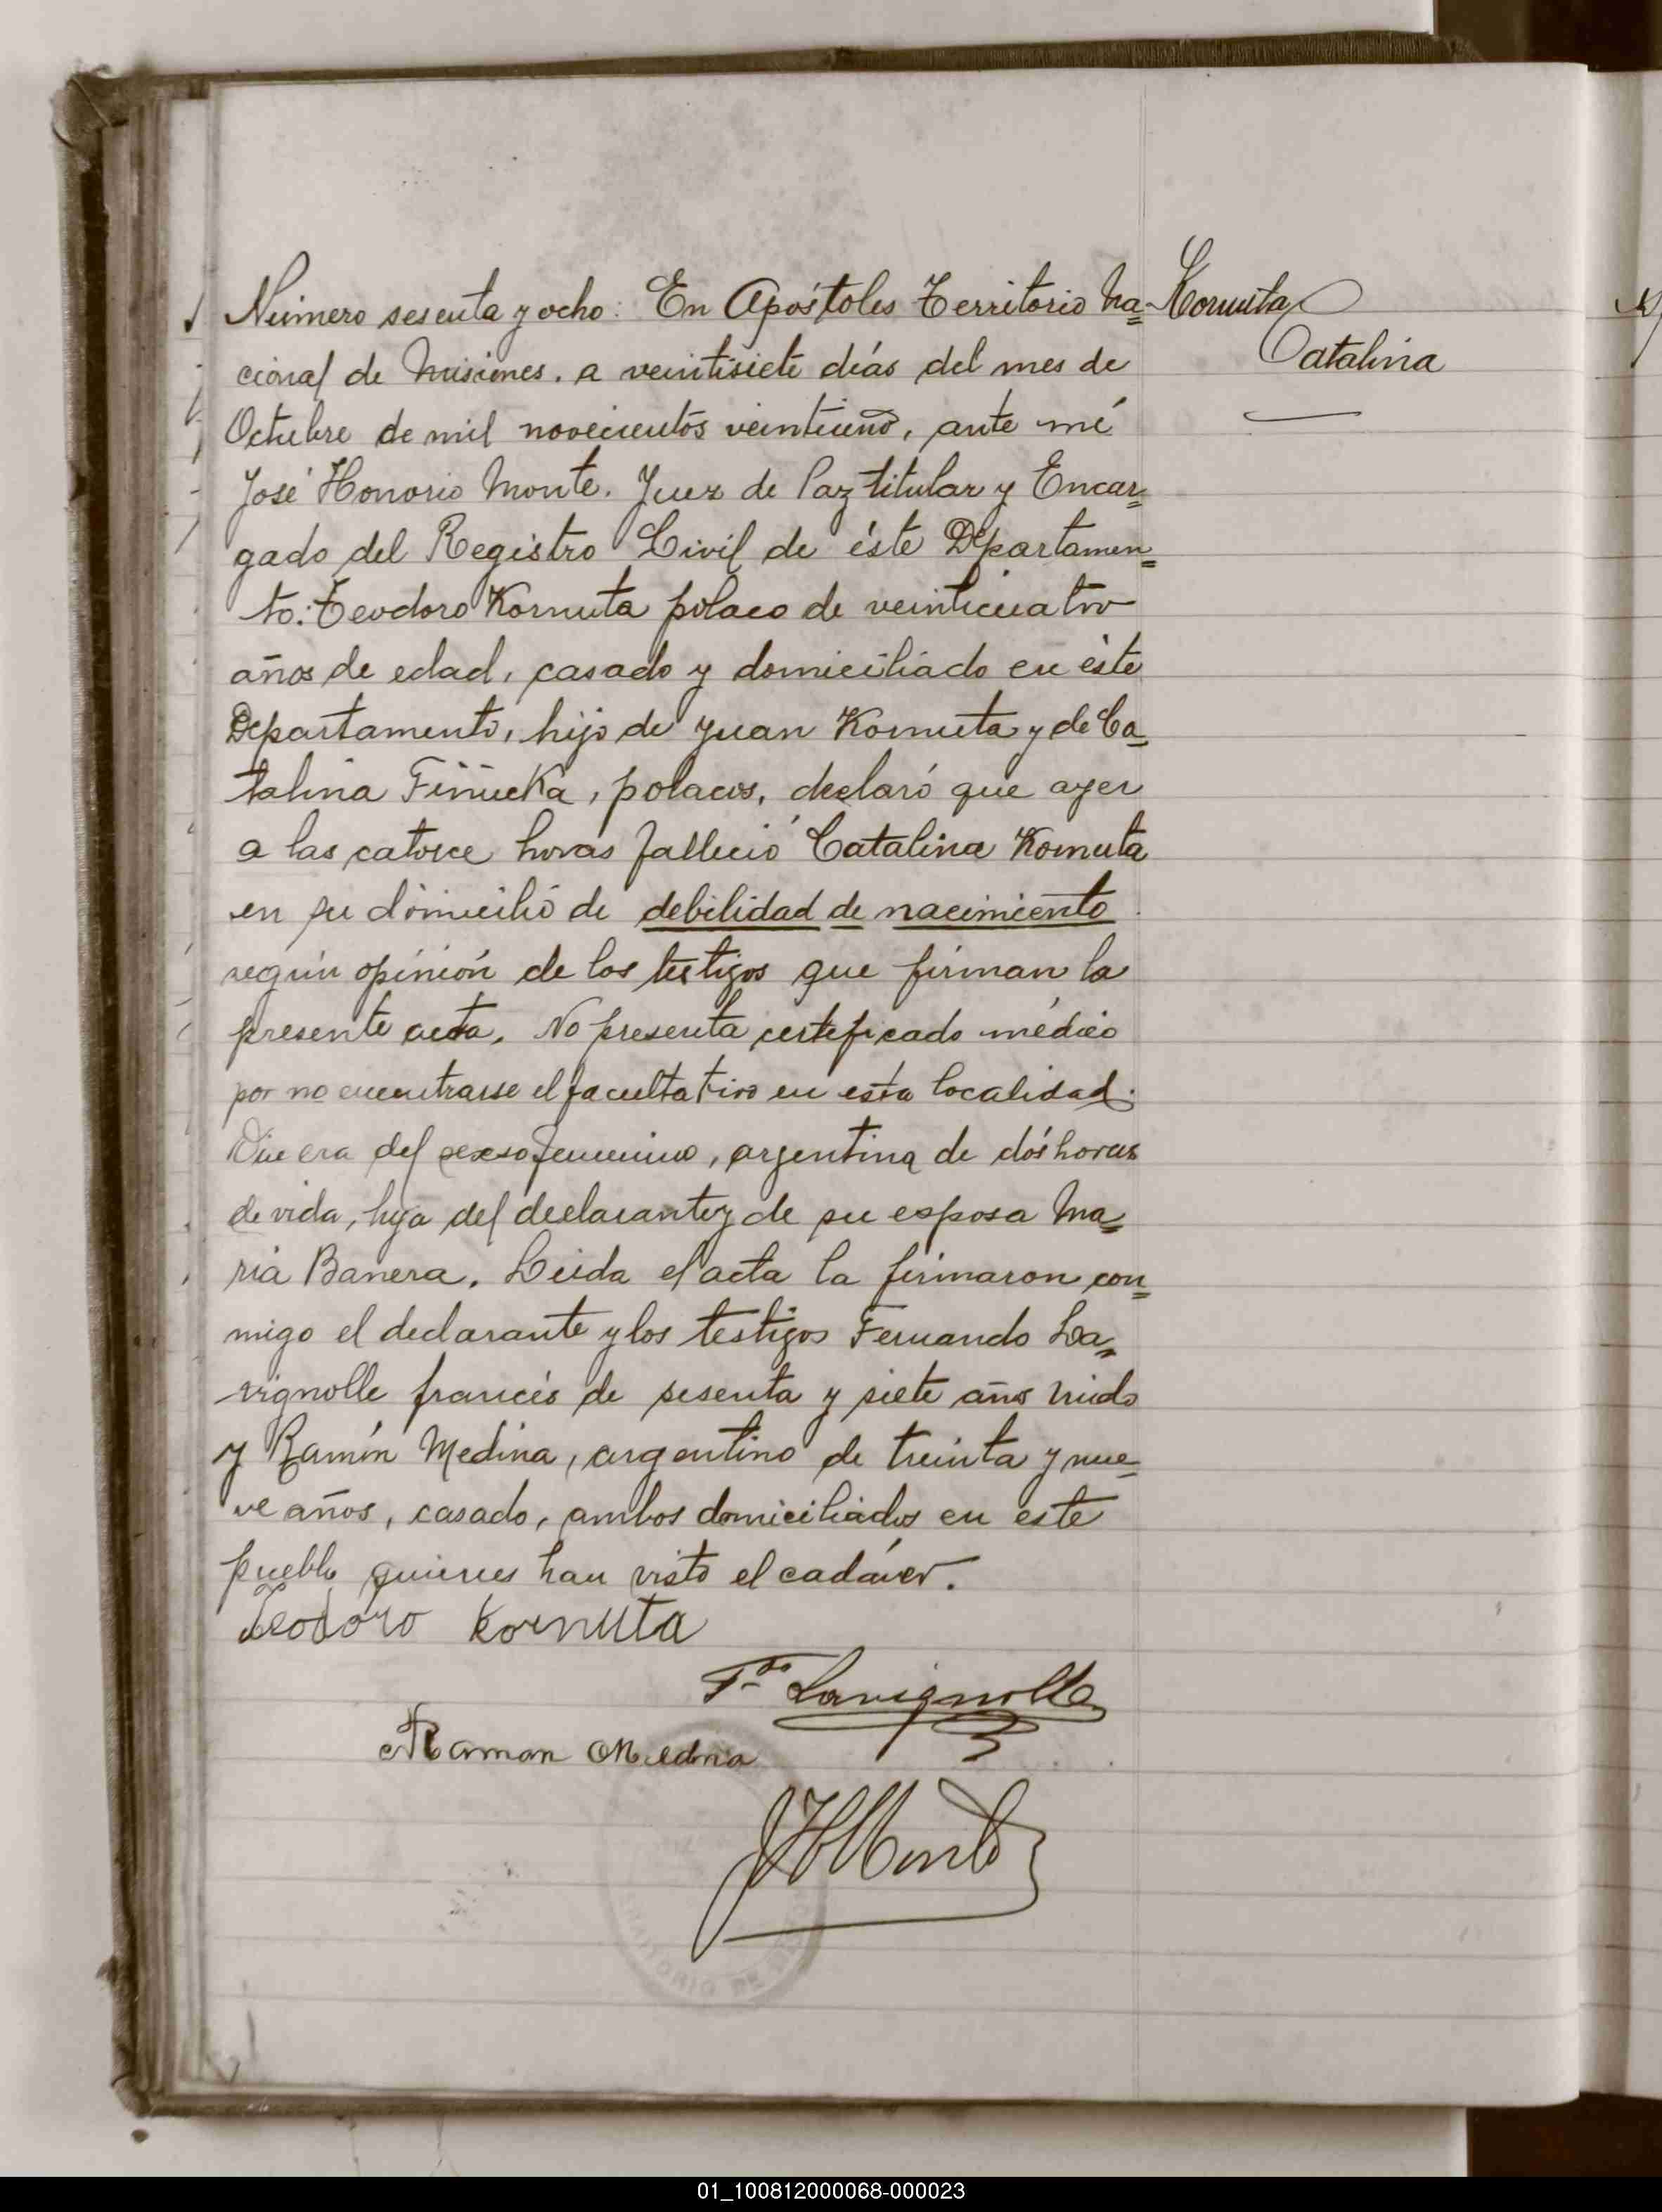 Número sesenta y ocho: En Apóstoles Territorio Na=
cional de Misiones. a veintisiete días del mes de
Octubre de mil novecientos veintiuno, ante mí
José Honorio Monte. Juez de Paz titular y Encar=
gado del Registro Civil de éste Departamen=
to: Teodoro Kornuta polaco de veinticuatro
años de edad, casado y domiciliado en éste
Departamento, hijo de Juan Kornuta y de Ca=
talina , polacos, declaró que ayer
a las catorce horas falleció Catalina Kornuta
en su domicilio de debilidad de nacimiento
según opinión de los testigos que firman la
presente acta. No presenta certificado médico
por no encontrarse el facultativo en esta localidad.
Que era del sexso femenino, argentina de dós horas
de vida, hija del declarante y de su esposa Ma=
ria Banera. Leida el acta la firmaron con=
migo el declarante y los testigos Fernando La=
vignolle francés de sesenta y siete años viudo
y Ramón Medina, argentino de treinta y nue=
ve años, casado, ambos domiciliados en este
pueblo quienes han visto el cadáver.
Kornuta
Catalina
Teodoro Kornuta
F.do Lavignolle
Ramon Medina
JHMonte
01_100812000068-000023